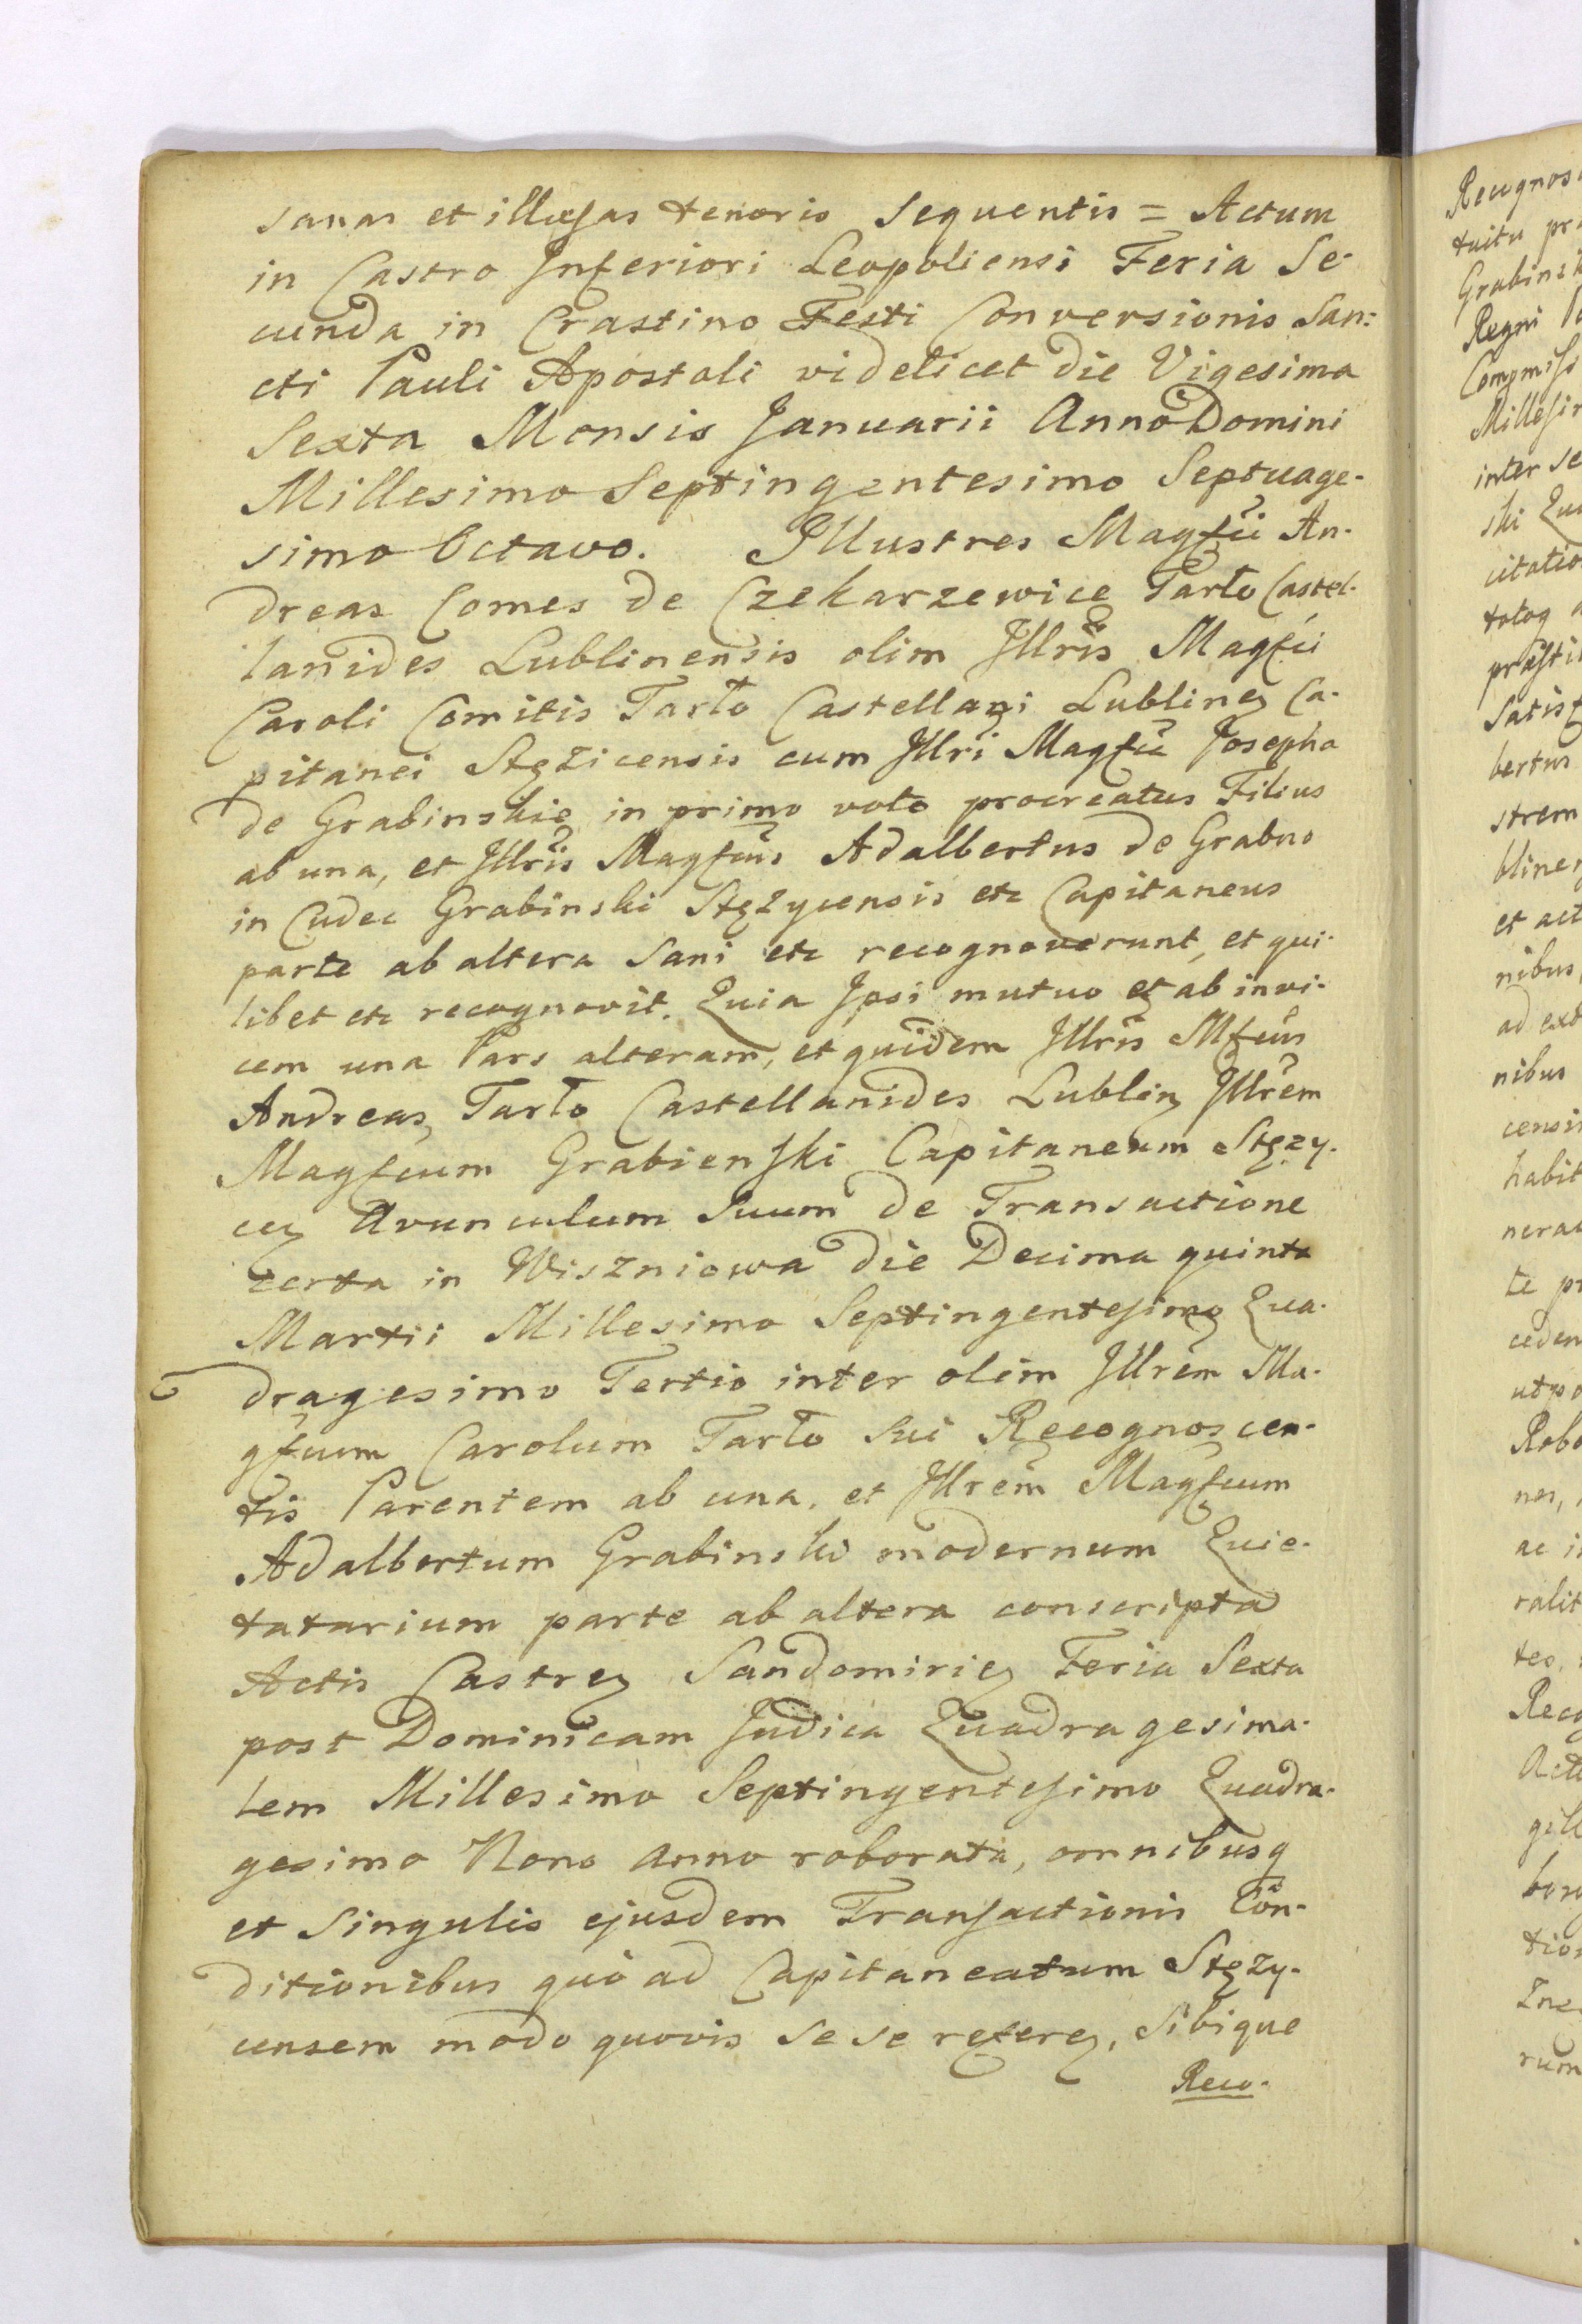 sanas et illæsas tenoris sequentis = Actum
in Castro Inferiori Leopoliensi Feria Se-
cunda in Crastino Festi Conversionis San:
cti Pauli Apostoli videlicet die Vigesima
Sexta Mensis Januarii Anno Domini
Millesimo Septingentesimo Septuage-
simo Octavo. Illustres Magfci An-
dreas Comes de Czekarzewice Tarło Castel-
lanides Lublinensis olim Illris Magfci
Caroli Comitis Tarło Castellani Lublinen Ca-
pitanei Stężicensis cum Illri Magfca Josepha
de Grabinskie in primo voto procreatus Filius
ab una, et Illris Magfcus Adalbertus de Grabno
in Cudec Grabinski Stężycensis etc Capitaneus
parte ab altera Sani etc recognoverunt, et qui-
libet etc recognovit. Quia Ipsi mutuo et ab invi-
cem una Pars alteram, et quidem Illris Mfcus
Andreas Tarło Castellanides Lublin Illrem
Magfcum Grabienski Capitaneum Stęzy-
cen Avunculum Suum de Transactione
certa in Wiszniowa die Decima quinta
Martii Millesimo Septingentesimo Qua-
dragesimo Tertio inter olim Illrem Ma-
gfcum Carolum Tarło Sui Recognoscen-
tis Parentem ab una, et Illrem Magfcum
Adalbertum Grabinski modernum Quie-
tatarium parte ab altera conscripta
Actis Castren Sandomirien Feria Sexta
post Dominicam Judica Quadragesima-
lem Millesimo Septingentesimo Quadra-
gesimo Nono anno roborata, omnibusq
et Singulis ejusdem Transactionis Con-
ditionibus quo ad Capitaneatum Stęzy-
censem modo quovis se se referen, Sibique
Reco-